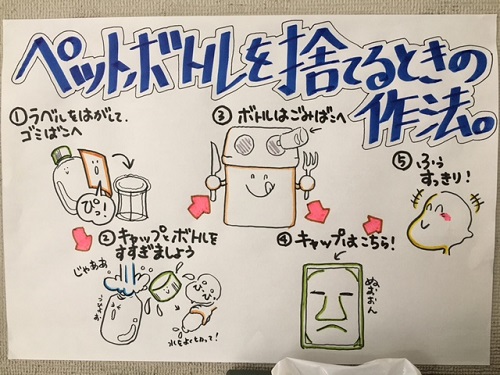 ペットボトルを捨てるときの
作法。
①ラベルをはがして、
ゴミばこへ
ぴっ!
②キャップとボトルを
すすぎましょう
じゃああ
水をよくきって!
③ボトルはごみばこへ
④キャップはこちら!
ぬぉおん
⑤ふぅ
すっきり!